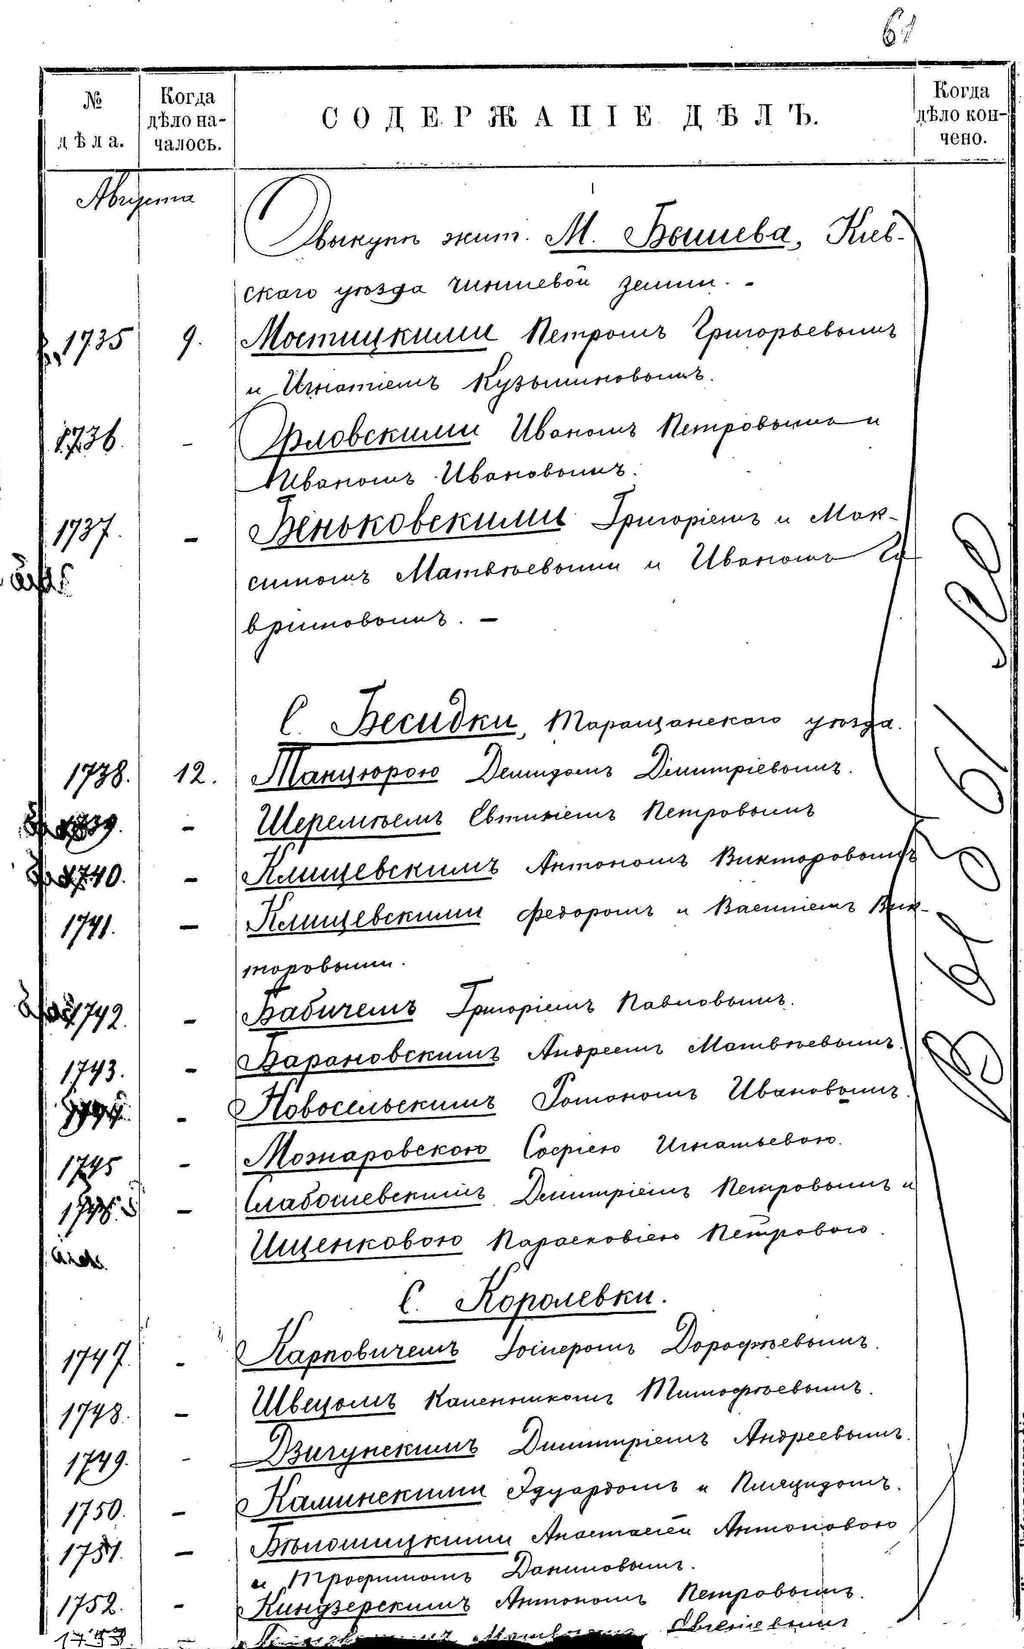 61
№ дѣла.
Когда дѣло началось.
СОДЕРЖАНІЕ ДѢЛЪ.
Когда дѣло кончено.
Августа
О выкупѣ жит. М. Бышева, Кіев-
скаго уѣзда чиншевой земли. -
1735 9. Мостицкими Петромъ Григорьевымъ
и Игнатіемъ Кузьминовымъ.
1736. - Орловскими Иваномъ Петровымъ и
Иваномъ Ивановымъ.
1737. - Беньковскими Григоріемъ и Мак-
симомъ Матвѣевыми и Иваномъ Га
вріиловымъ. -
С. Бесидки, Таращанскаго уѣзда.
1738. 12. Танцюрою Демидомъ Дімитріевымъ.
1739. - Шереметьемъ Евтихіемъ Петровымъ
1740. - Клищевскимъ Антономъ Викторовымъ
1741. - Клищевскими Федоромъ и Василіемъ Вик-
торовыми.
1742. - Бабичемъ Григоріемъ Павловымъ.
1743. - Барановскимъ Андреемъ Матвѣевымъ.
1744. - Новосельскимъ Романомъ Ивановымъ.
1745 - Мознаровскою Софіею Игнатьевою.
1746. - Слабошевскимъ Димитріемъ Петровымъ и
Ищенковою Парасковіею Петровою.
С. Королевки.
1747. - Карповичемъ Іосифомъ Дорофѣевымъ.
1748. - Швецомъ Каленникомъ Тимофѣевымъ.
1749. - Дзигунскимъ Димитріемъ Андреевымъ.
1750. - Каминскими Эдуардомъ и Пляцидомъ.
1751. - Бѣлошицкими Анастасіей Антоновою
и Трофимомъ Даниловымъ.
1752. - Киндзерскимъ Антономъ Петровымъ.
1753 Евгеніевымъ
Выбыло